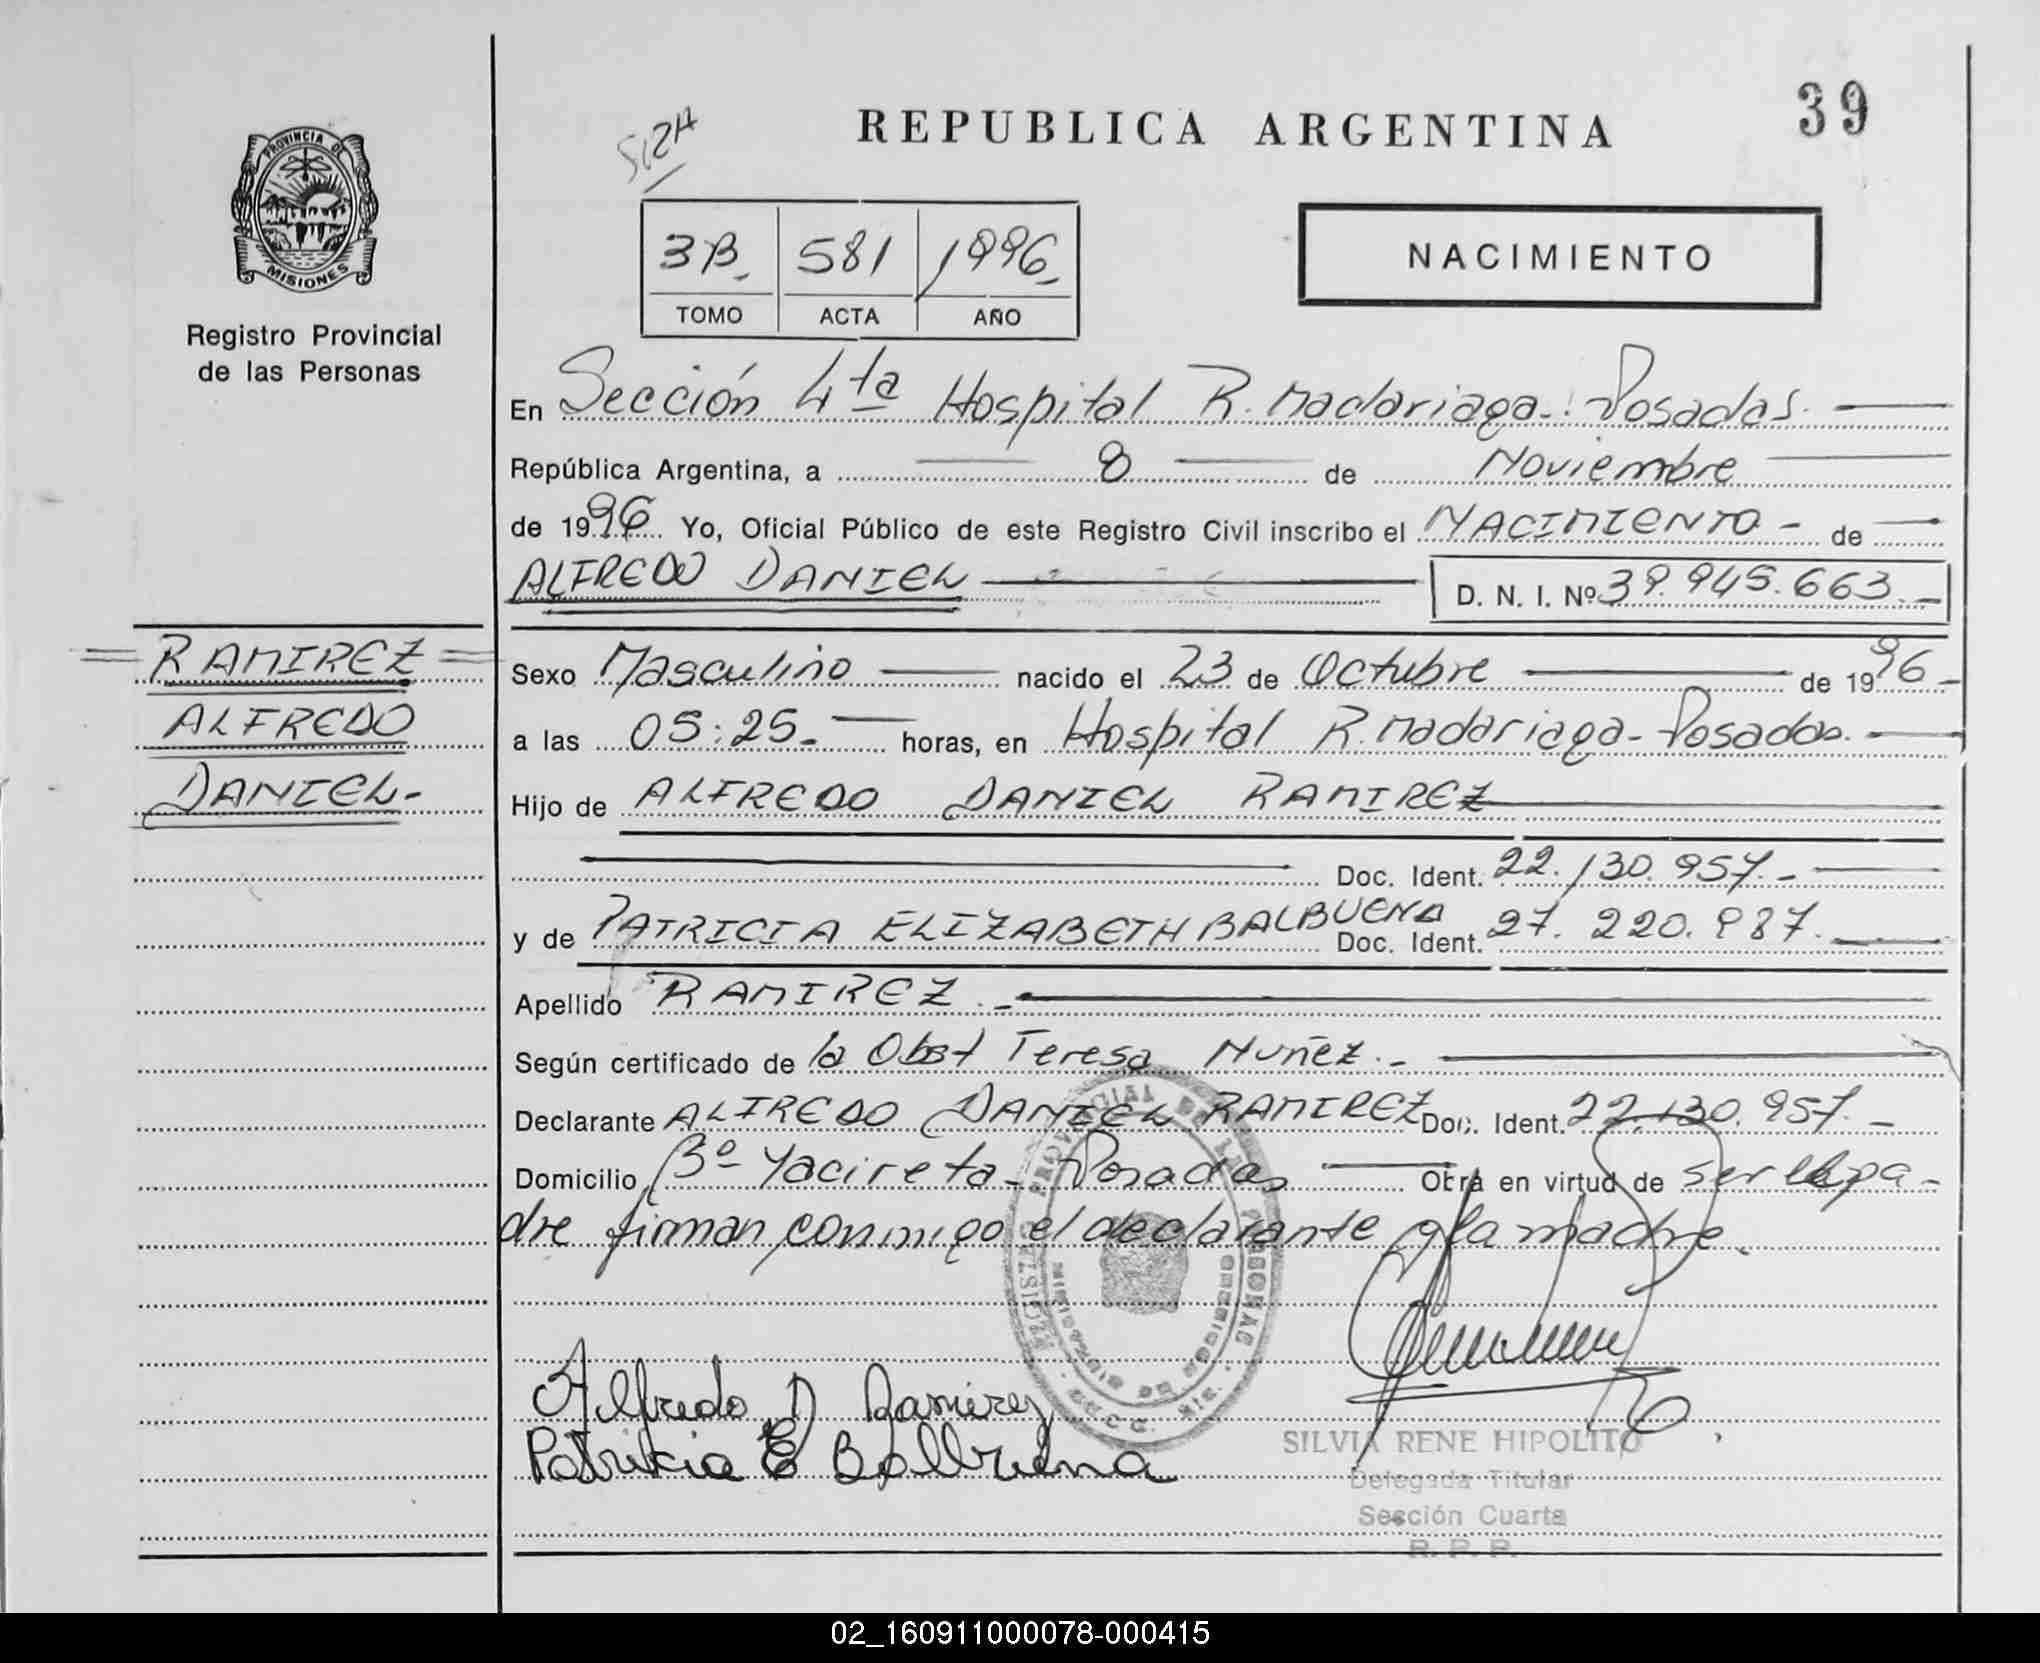 39
REPUBLICA ARGENTINA
PROVINCIA DE
MISIONES
Registro Provincial
de las Personas
3B.
581
1996.
TOMO
ACTA
AÑO
NACIMIENTO
En Sección 4ta Hospital R. Madariaga.- Posadas.
República Argentina, a 8 de Noviembre
de 1996 Yo, Oficial Público de este Registro Civil inscribo el NACIMIENTO - de
ALFREDO DANIEL D. N. I. Nº 39.945.663.-
RAMIREZ
ALFREDO
DANIEL.
Sexo Masculino nacido el 23 de Octubre de 1996-
a las 05:25.- horas, en Hospital R. Madariaga - Posadas.
Hijo de ALFREDO DANIEL RAMIREZ
Doc. Ident. 22.130.957.-
y de PATRICIA ELIZABETH BALBUENA Doc. Ident. 27.220.987.
Apellido RAMIREZ.-
Según certificado de la Obst Teresa Nuñez.-
Declarante ALFREDO DANIEL RAMIREZ Doc. Ident. 22.130.957.-
Domicilio Bº Yacireta - Posadas Obra en virtud de ser el pa-
dre firman conmigo el declarante y la madre.
Alfredo D Ramirez
Patricia E Balbuena
SILVIA RENE HIPOLITO
Delegada Titular
Sección Cuarta
R. P. P.
02_160911000078-000415